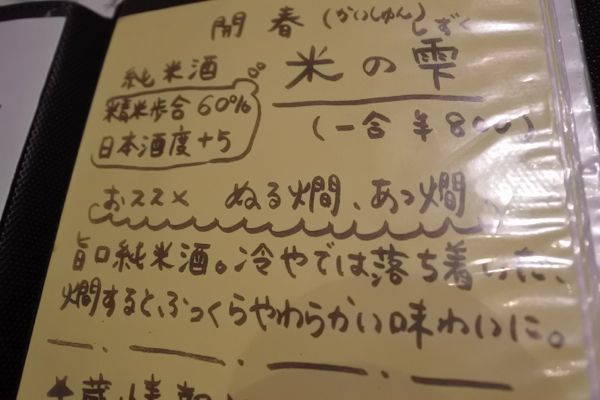 開春 (かいしゅん)
純米酒 米の雫 しずく
精米歩合 60%
日本酒度 +5
(一合 ¥800)
おススメ ぬる燗、あつ燗
旨口純米酒。冷やでは落ち着いた、
燗するとふっくらやわらかい味わいに。
★蔵